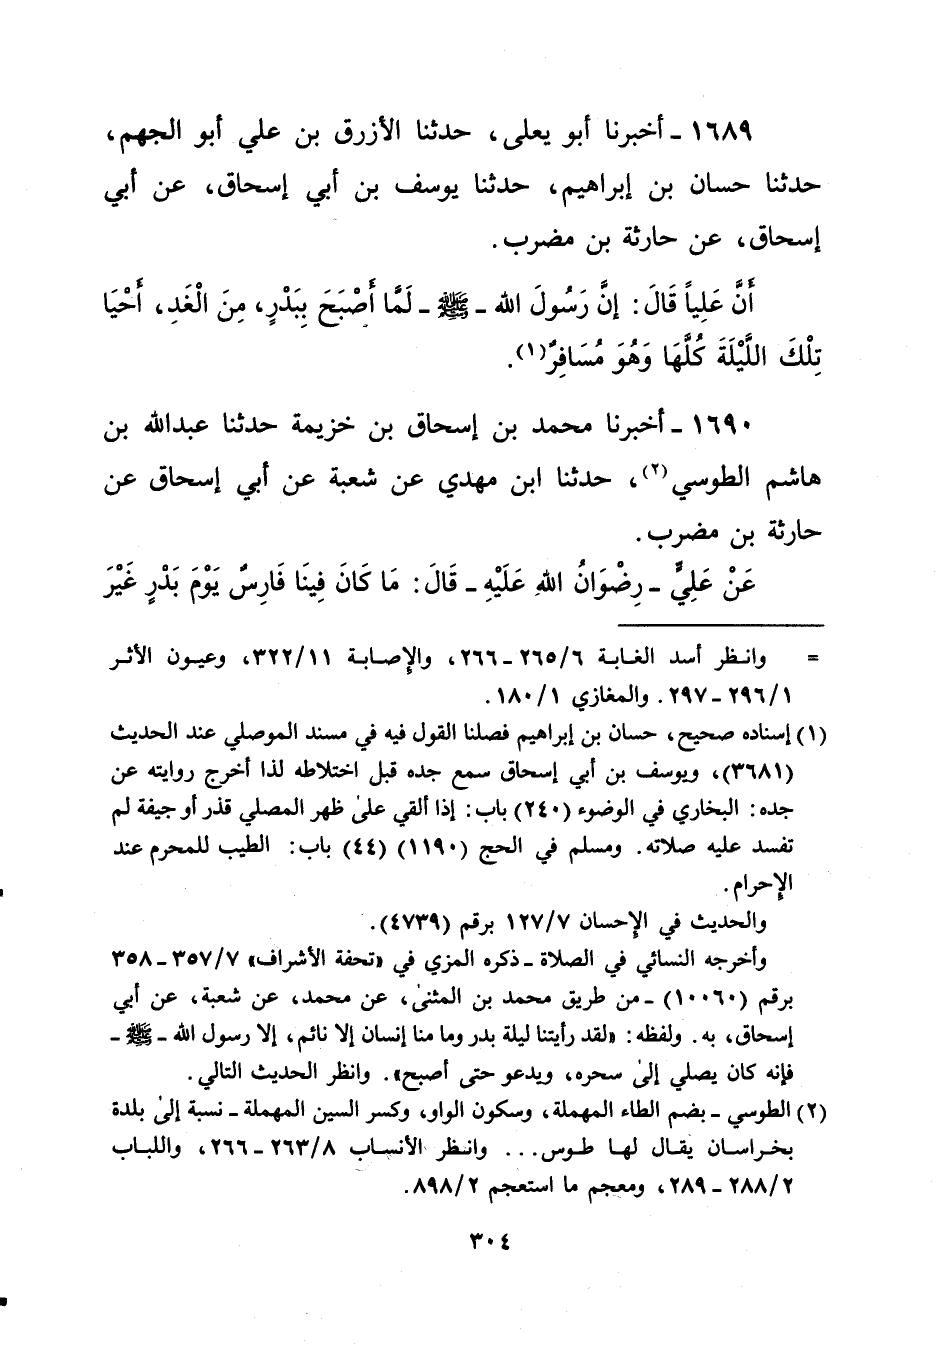 ١٦٨٩ ـ أخبرنا أبو يعلى، حدثنا الأزرق بن علي أبو الجهم،
حدثنا حسان بن إبراهيم، حدثنا يوسف بن أبي إسحاق، عن أبي
إسحاق، عن حارثة بن مضرب.
أَنَّ عَلِياً قَالَ: إِنَّ رَسُولَ الله ـ ﷺ ـ لَمَّا أَصْبَحَ بِبَدْرٍ، مِنَ الْغَدِ، أَحْيَا
تِلْكَ اللَّيْلَةَ كُلَّهَا وَهُوَ مُسَافِرٌ(١).
١٦٩٠ ـ أخبرنا محمد بن إسحاق بن خزيمة حدثنا عبدالله بن
هاشم الطوسي(٢)، حدثنا ابن مهدي عن شعبة عن أبي إسحاق عن
حارثة بن مضرب.
عَنْ عَلِيٍّ ـ رِضْوَانُ اللهِ عَلَيْهِ ـ قَالَ: مَا كَانَ فِينَا فَارِسٌ يَوْمَ بَدْرٍ غَيْرَ
= وانظر أسد الغابة ٢٦٥/٦ ـ ٢٦٦، والإصابة ٣٢٢/١١، وعيون الأثر
٢٩٦/١ ـ ٢٩٧. والمغازي ١٨٠/١.
(١) إسناده صحيح، حسان بن إبراهيم فصلنا القول فيه في مسند الموصلي عند الحديث
(٣٦٨١)، ويوسف بن أبي إسحاق سمع جده قبل اختلاطه لذا أخرج روايته عن
جده: البخاري في الوضوء (٢٤٠) باب: إذا ألقي علىٰ ظهر المصلي قذر أو جيفة لم
تفسد عليه صلاته. ومسلم في الحج (١١٩٠) (٤٤) باب: الطيب للمحرم عند
الإحرام.
والحديث في الإحسان ١٢٧/٧ برقم (٤٧٣٩).
وأخرجه النسائي في الصلاة ـ ذكره المزي في «تحفة الأشراف» ٣٥٧/٧ ـ ٣٥٨
برقم (١٠٠٦٠) ـ من طريق محمد بن المثنىٰ، عن محمد، عن شعبة، عن أبي
إسحاق، به. ولفظه: «لقد رأيتنا ليلة بدر وما منا إنسان إلا نائم، إلا رسول الله ـ ﷺ ـ
فإنه كان يصلي إلىٰ سحره، ويدعو حتى أصبح». وانظر الحديث التالي.
(٢) الطوسي ـ بضم الطاء المهملة، وسكون الواو، وكسر السين المهملة ـ نسبة إلىٰ بلدة
بخراسان يقال لها طوس... وانظر الأنساب ٢٦٣/٨ ـ ٢٦٦، واللباب
٢٨٨/٢ ـ ٢٨٩، ومعجم ما استعجم ٨٩٨/٢.
٣٠٤